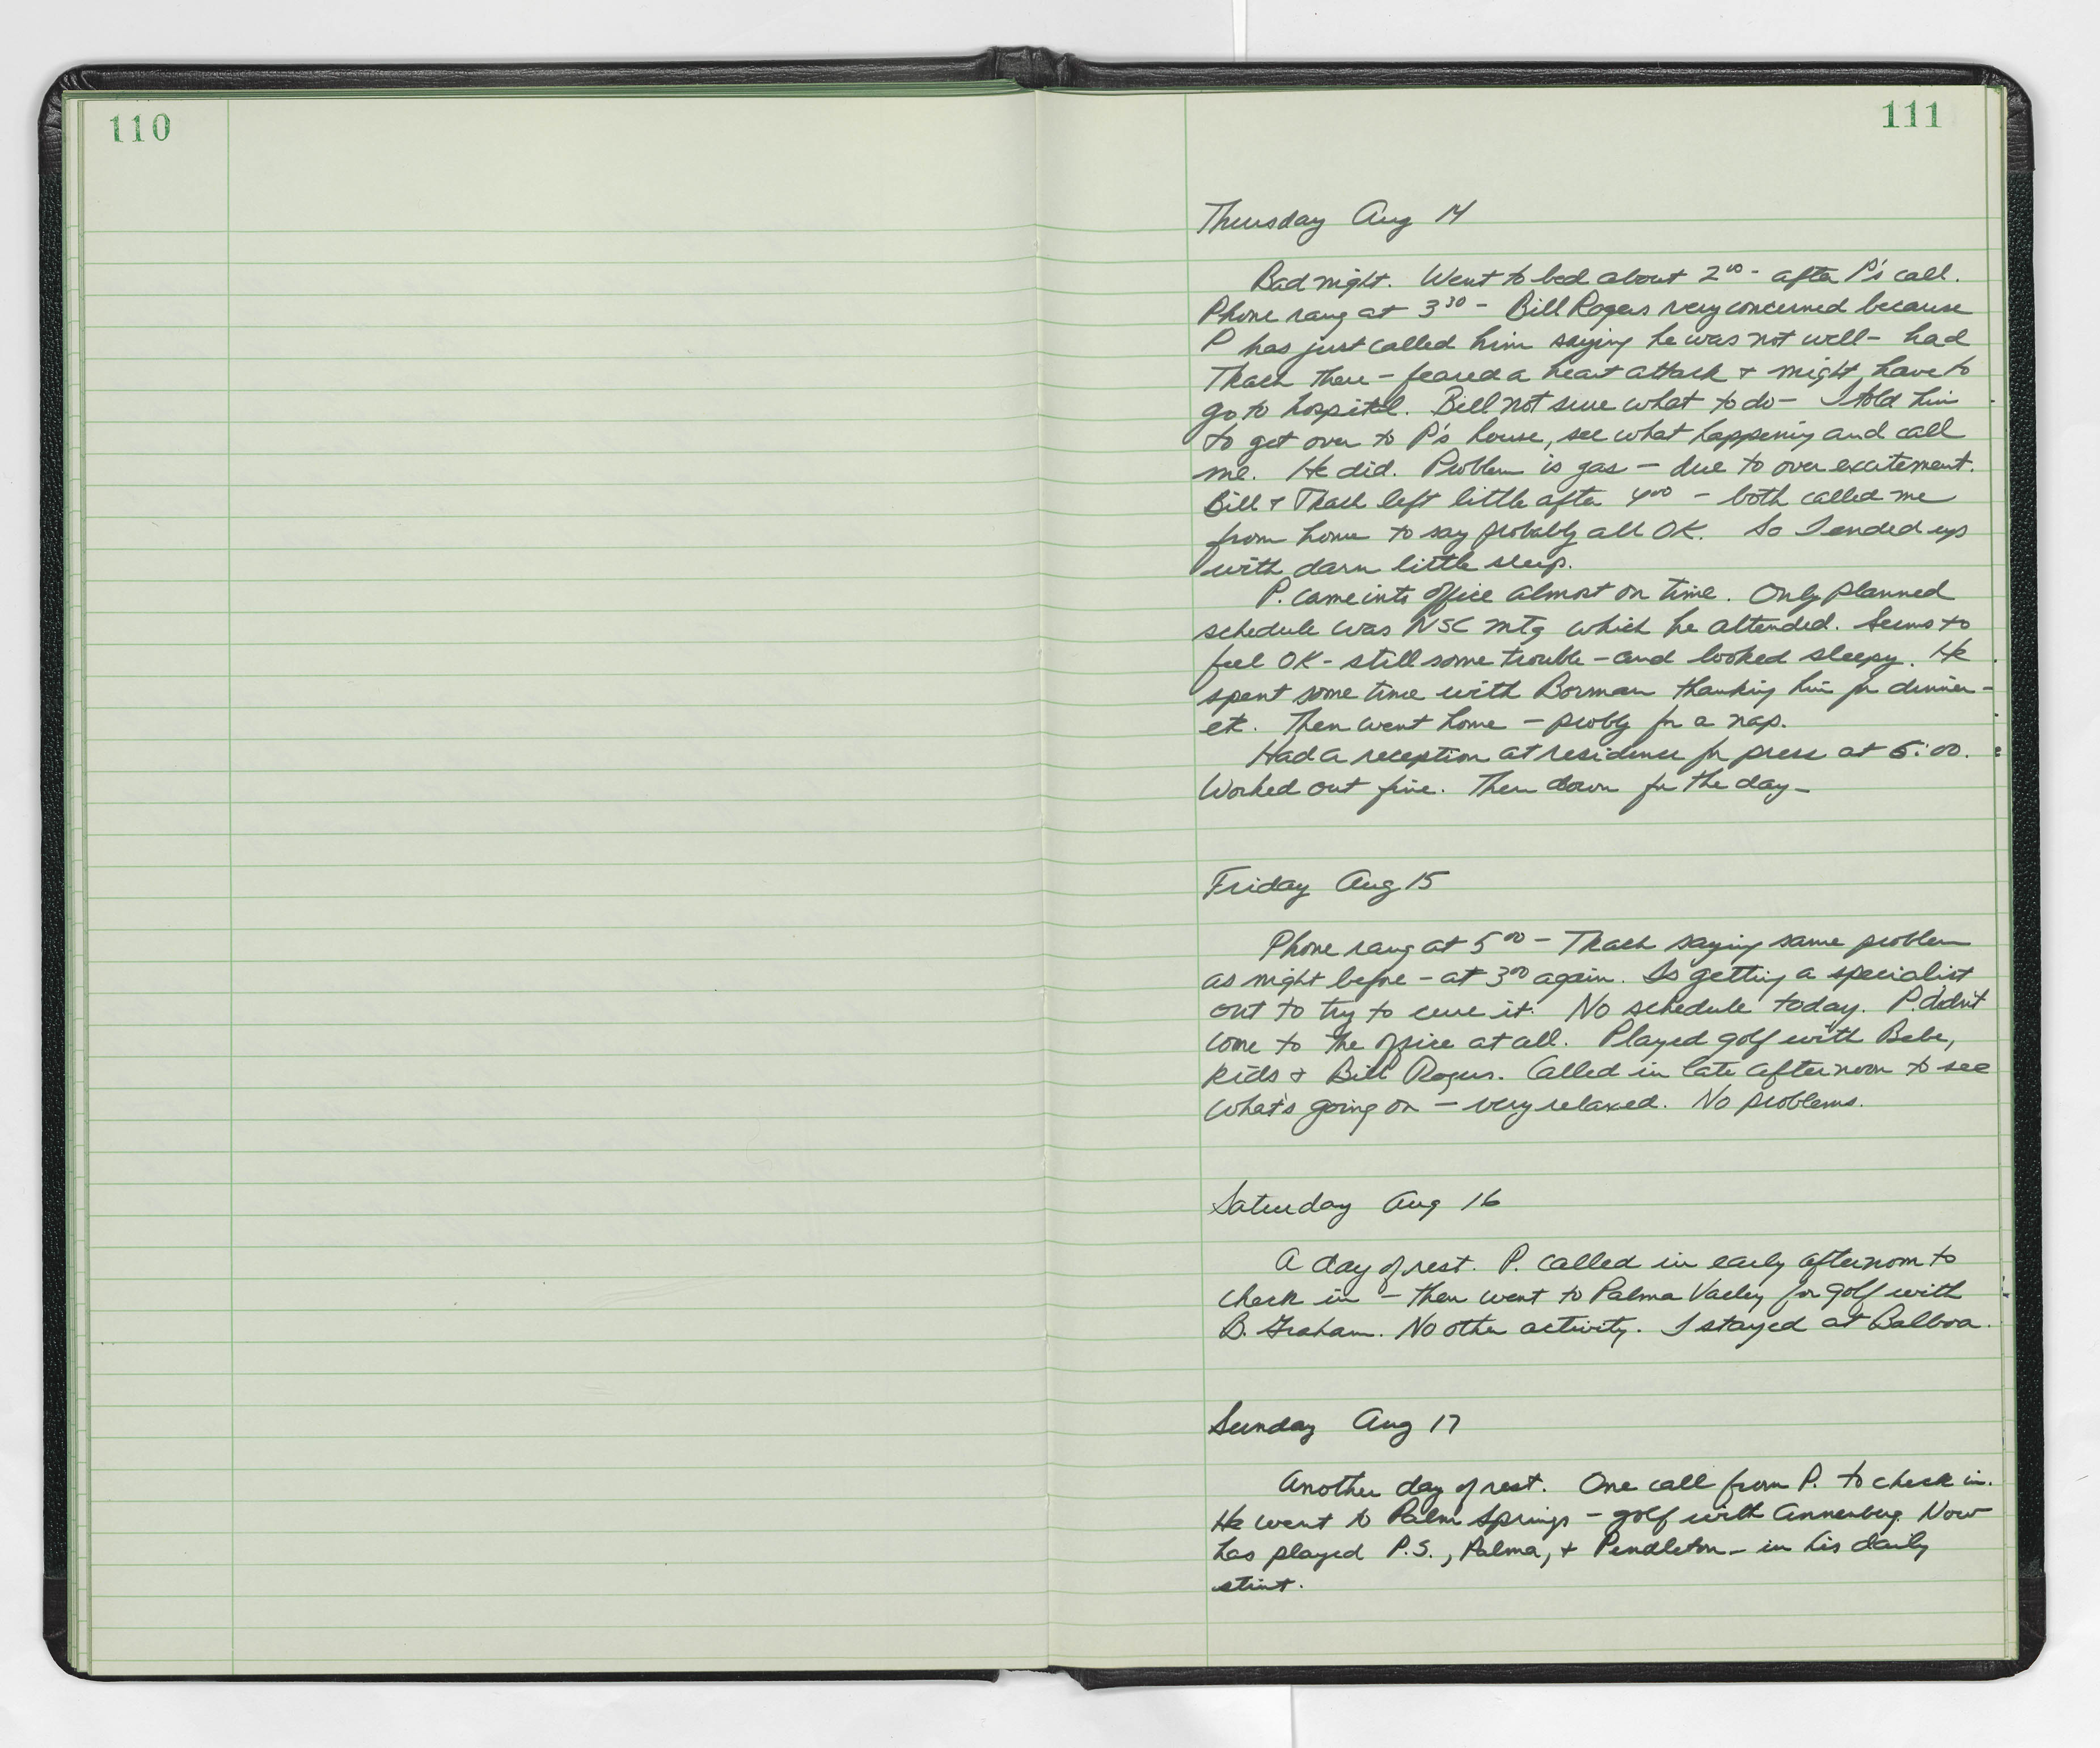 110
111
Thursday Aug 14
Bad night. Went to bed about 2⁰⁰ - after P's call.
Phone rang at 3³⁰ - Bill Rogers very concerned because
P has just called him saying he was not well - had
Tkach there - feared a heart attack & might have to
go to hospital. Bill not sure what to do - I told him
to get over to P's house, see what happening and call
me. He did. Problem is gas - due to over excitement.
Bill & Tkach left little after 4⁰⁰ - both called me
from home to say probably all OK. So I ended up
with darn little sleep.
P. came into office almost on time. Only planned
schedule was NSC mtg which he attended. Seems to
feel OK - still some trouble - and looked sleepy. He
spent some time with Borman thanking him for dinner -
etc. Then went home - probly for a nap.
Had a reception at residence for press at 6:00.
Worked out fine. Then down for the day -
Friday Aug 15
Phone rang at 5⁰⁰ - Tkach saying same problem
as night before - at 3⁰⁰ again. Is getting a specialist
out to try to cure it. No schedule today. P. didn't
come to the office at all. Played golf with Bebe,
kids & Bill Rogers. Called in late afternoon to see
what's going on - very relaxed. No problems.
Saturday Aug 16
A day of rest. P. called in early afternoon to
check in - then went to Palma Valley for golf with
B. Graham. No other activity. I stayed at Balboa.
Sunday Aug 17
Another day of rest. One call from P. to check in.
He went to Palm Springs - golf with Annenberg. Now
has played P.S., Palma, & Pendleton - in his daily
stint.